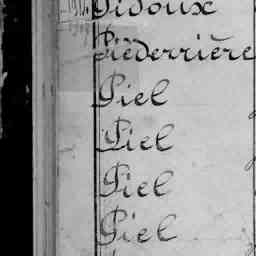 Pidoux
Piederrière
Piel
Piel
Piel
Piel